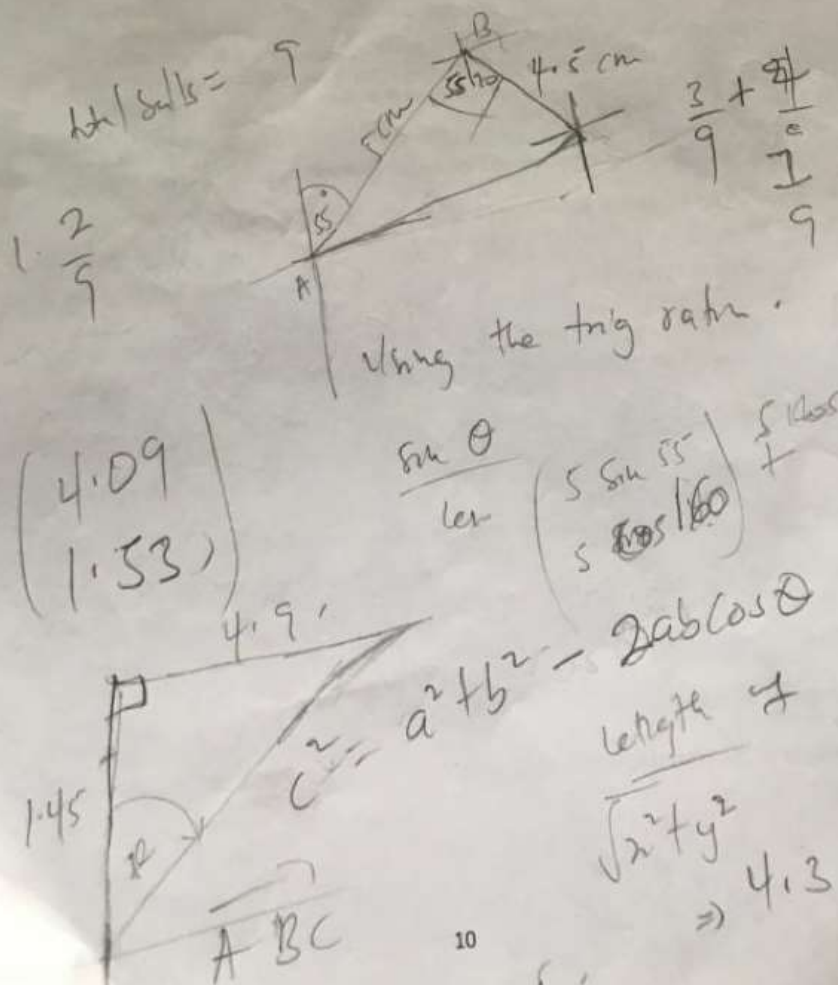 total balls = 9
B
4.5 cm
5cm
55
A
3/9 + 4/9
7
9
1. 2/9
Using the trig ratio.
(4.09
1.53)
sin θ
(5 sin 55
5 cos 160) +
4.9
c² = a² + b² - 2ab cos θ
1.45
length of
√x² + y²
⇒ 4.3
ABC
10